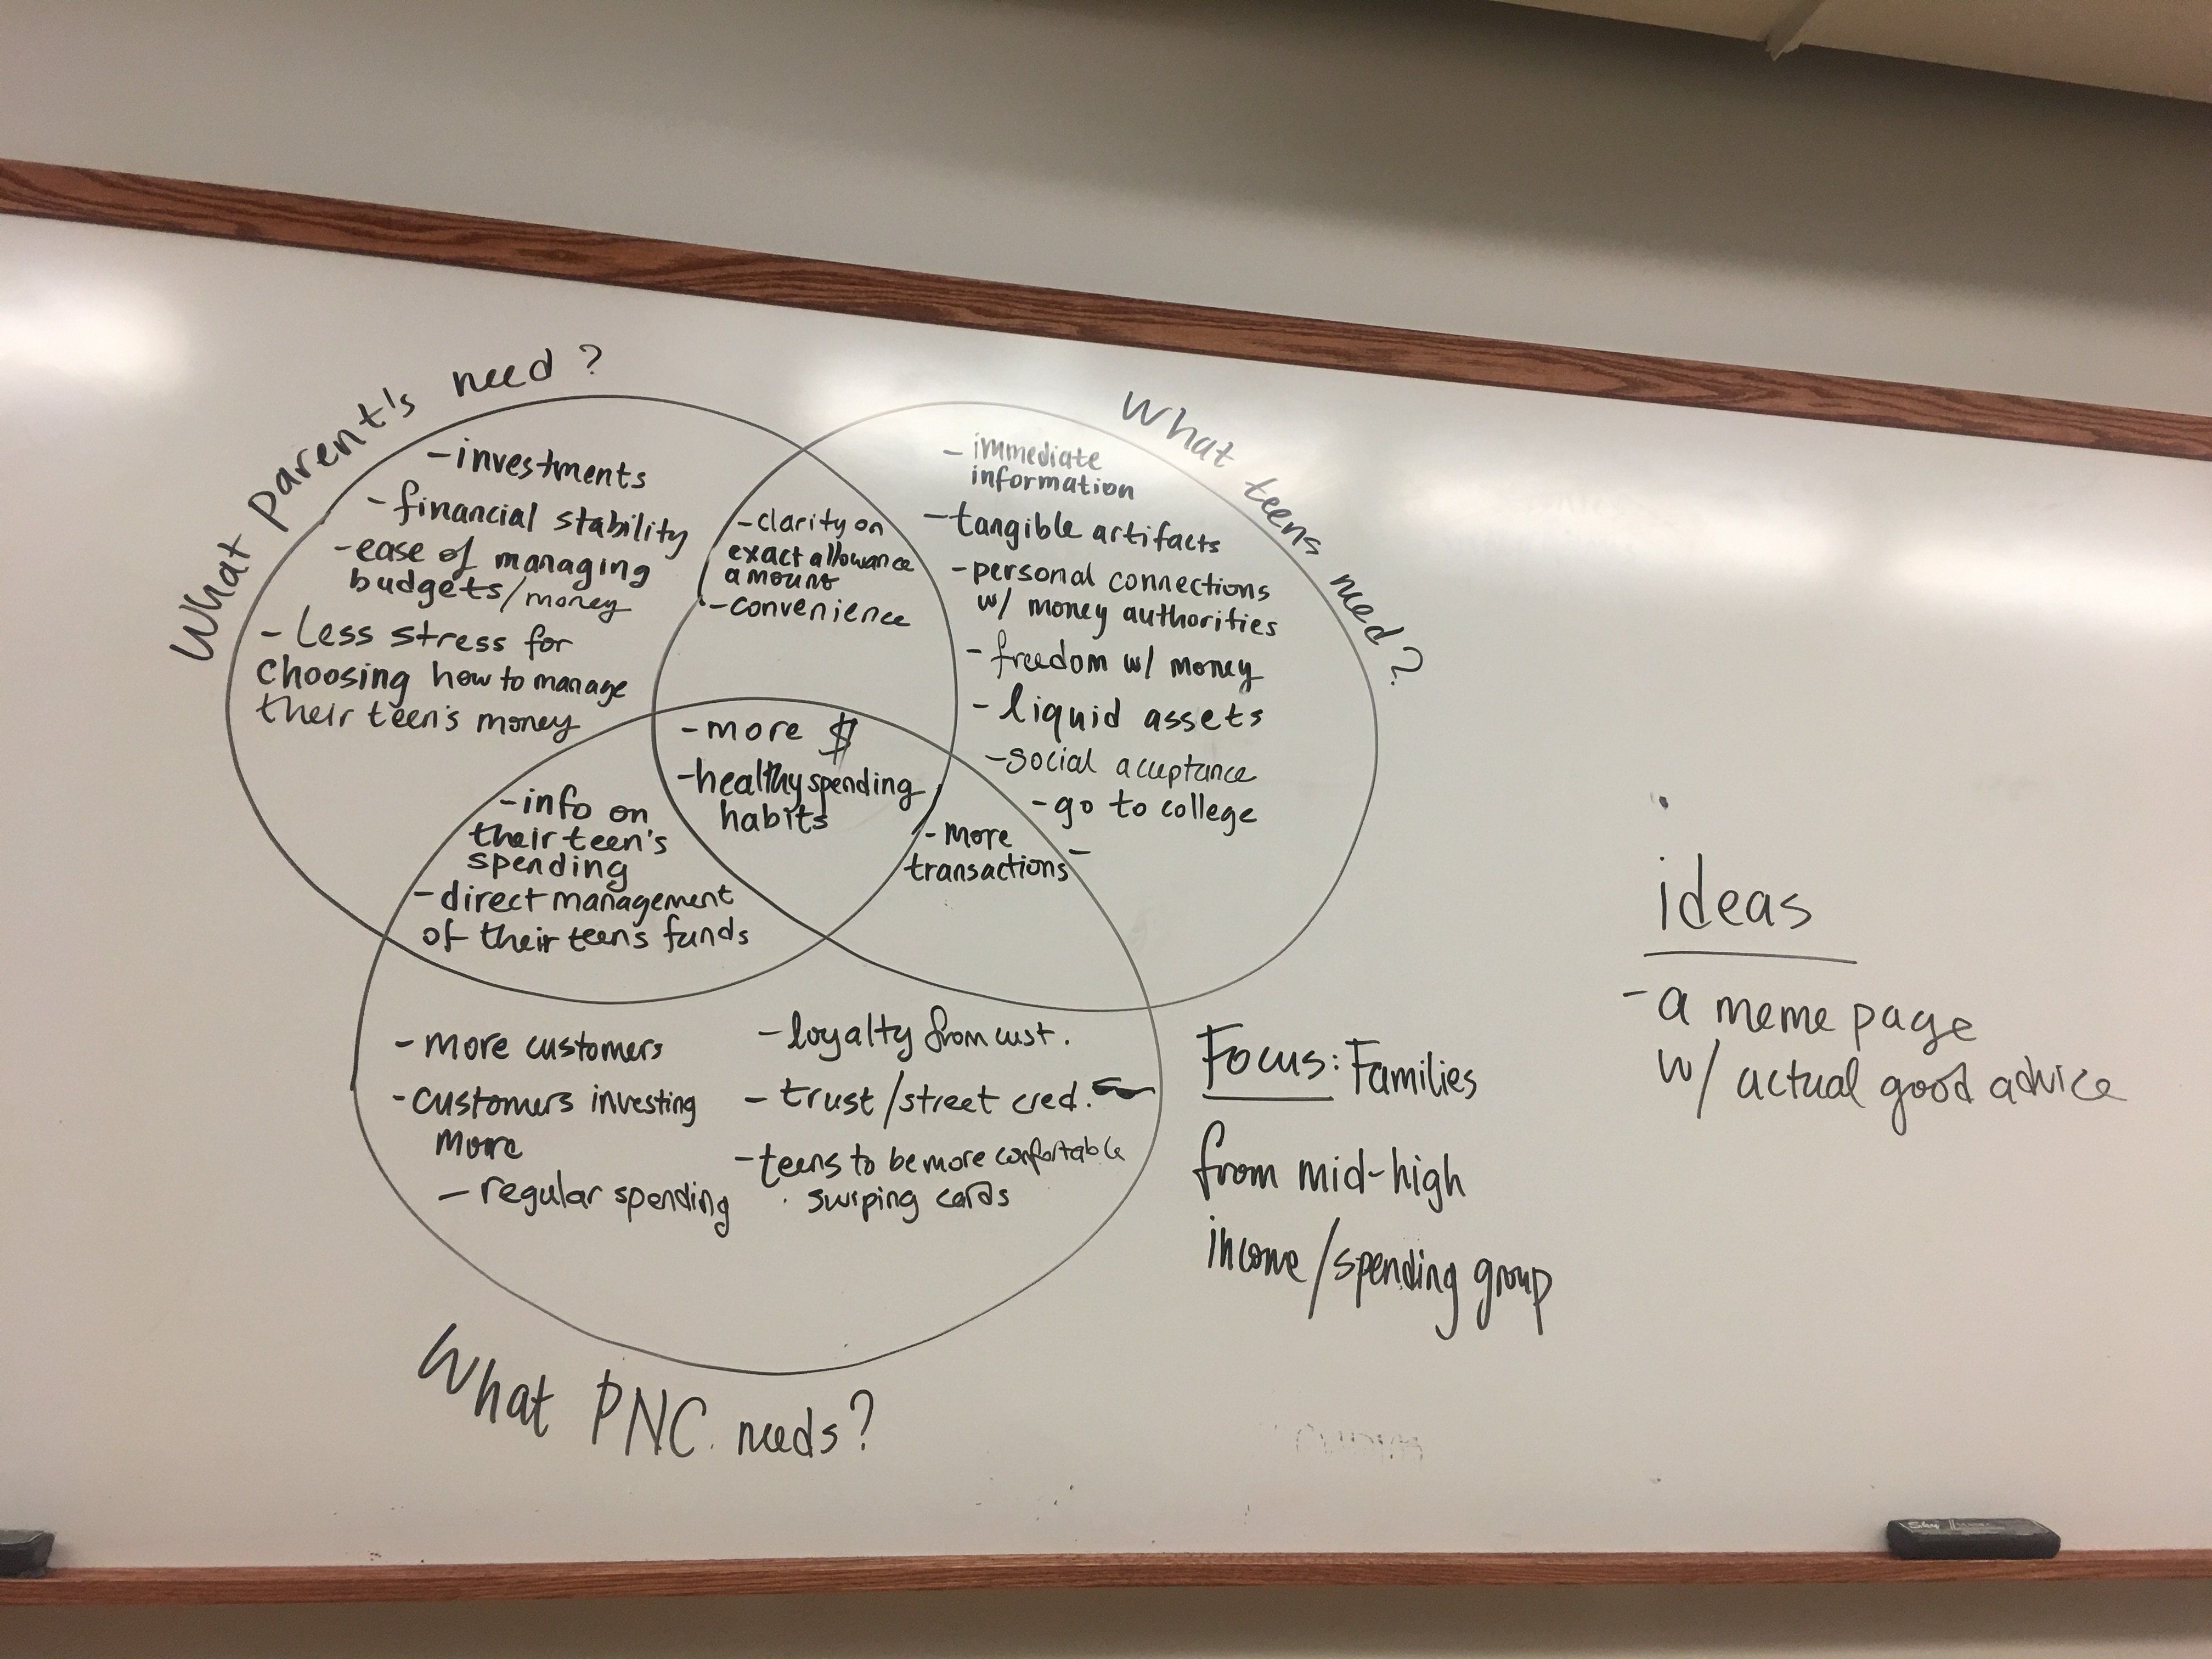 What Parent's need?
- investments
- financial stability
- ease of managing
budgets/money
- Less stress for
choosing how to manage
their teen's money
- clarity on
exact allowance
amount
- convenience
What teens need?
- immediate
information
- tangible artifacts
- personal connections
w/ money authorities
- freedom w/ money
- liquid assets
- social acceptance
- go to college
-
- more $
- healthy spending
habits
- info on
their teen's
spending
- direct management
of their teens funds
- more
transactions
- more customers
- customers investing
more
- regular spending
- loyalty from cust.
- trust/street cred.
- teens to be more confortable
swiping cards
What PNC needs?
Focus: Families
from mid-high
income/spending group
ideas
- a meme page
w/ actual good advice